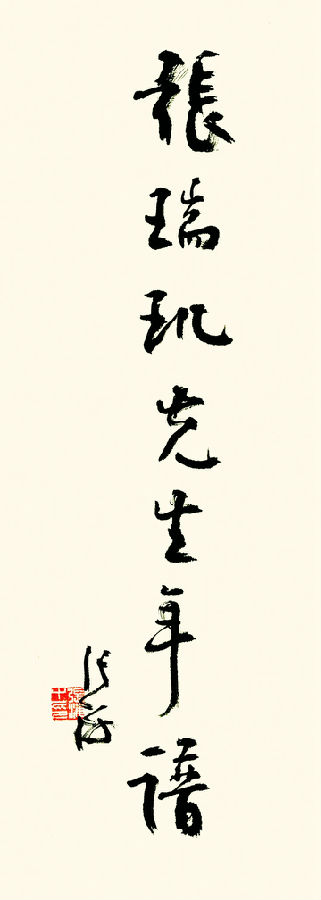 張瑞玑先生年譜